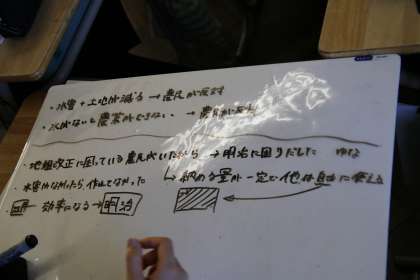 ・水害+土地が減る→農民が反対
・水がないと農業ができない→農民が反対
・地租改正に困っている農民がいたから→明治に困りだした
・水害がなかったら作してなかった
↳納める量が一定で他は自由に使える
効率になる→明治